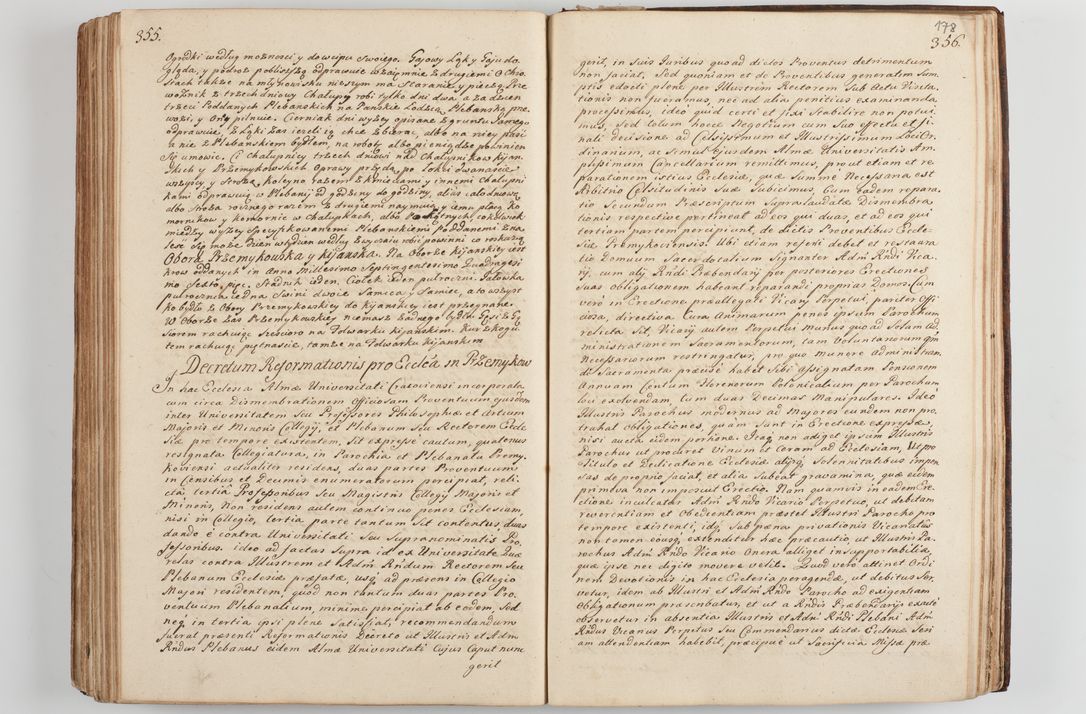 355.
Ogrodki według możnosci y dowcipu swoiego. Gajowy Łąk y Gaju do
gląda, y podroż pobliższą odprawuie wzaiemnie z drugiemi o Chro
stach także na młynowisku nieszym ma staranie y pieczą. Prze
woznik z trzech dniowy Chałupy robi tylko dni dwa a za dzien
trzeci Poddanych Plebanskich na Panskie Łodzią Plebanską prze
wozi, y oney pilnuie. Cierniak dni wyżey opisane z gruntu samego
odprawuie, z Łąki zas iezeli ią chce zbierac, albo na niey pasi
anie z Plebanskiem bydłem, na roboty albo pieniądze powinien
się umowic. Ci Chałupnicy trzech dniowi nad Chałupnikow kijan
skich y Przemykowskich Oprawy przędą po Łokci dwanascie
wszyscy y Strożą koleyno razem z kmieciami y innemi Chałupni
kami odprawuią w Plebanij od godziny do godziny, alias całodniową,
albo Stroża rocznego razem z drugiemi naymuią y iemu płacą. Ko
mornikow y komornic w Chałupkach, albo Pokątnych, cokolwiek
miedzy wyżey specyfikowanemi Plebanskiemi Poddanemi zna
lesc się może dzien w tydzien według zwyczaiu robi powinni co rozkażą.
Obora Przemykowska y kijanska. Na Oborze kijanskiey iest
krow oddanych in Anno Millesimo Septingentesimo Quadragesi
mo Sexto, pięc. Stadnik ieden, Ciołek ieden pułroczni. Jałowka
pułroczna iedna Swini dwoie Samica y Samiec, a to wszyst
ko bydło z Obory Przemykowskiey do kijanskiey iest przegnane.
W Oborze zas Przemykowskiey niemasz żadnego bydła. Gęsi z Gą
siorem rachuiąc Szescioro na Folwarku kijanskim. Kur z kogu
tem rachuiąc piętnascie, tamże na Folwarku kijanskiem
Decretum Reformationis pro Ecclea in Przemykow
In hac Ecclesia Almæ Universitati Cracoviensi incorporata
cum circa Dismembrationem Officiosam Proventuum ejusdem
inter Universitatem seu Professores Philosophiæ et Artium
Majoris et Minoris Collegij, et Plebanum seu Rectorem Eccle
siæ pro tempore existentem, sit expresse cautum, quatenus
resignata Collegiatura, in Parochia et Plebanatu Przemy
koviensi actualiter residens, duas partes Proventuum
in Censibus et Decimis enumeratorum percipiat, reli
cta, tertia Professoribus seu Magistris Collegij Majoris et
Minoris, Non residens autem continuo penes Ecclesiam,
nisi in Collegio, tertia parte tantum sit contentus, duas
dando e contra Universitati seu supranominatis Pro
fessoribus. ideo ad factas Supra id ex Universitate Quæ
relas contra Illustrem et Adm Rndum Rectorem seu
Plebanum Ecclesiæ præfatæ, usq ad præsens in Collegio
Majori residentem, quod non tantum duas partes Pro
ventuum Plebanalium, minime percipiat ab eodem, sed
neq in tertia ipsi plene satisfiat, recommendandum
fuerat præsenti Reformationis Decreto ut Illustris et Adm
Rndus Plebanus eidem Almæ Universitati Cujus Caput nunc
gerit
178
356.
gerit, in suis Juribus quoad dictos Proventus detrimentum
non faciat, sed quoniam et de Proventibus generatim sum
ptis edocti plene per Illustrem Rectorem sub Actu Visita
tionis non fueramus, nec ad alia penitius examinanda
processimus, ideo quid certi et fixi stabilire non potui
mus, sed totum hocce Negotium cum suo effectu et fi
nali decisione ad Celsissimum et Illustrissimum Loci Or
dinarium, ac semul ejusdem Almæ Universitatis Am
plissimum Cancellarium remittimus, prout etiam et re
parationem istius Ecclesiæ, quæ summe Necessaria est
Arbitrio Celsitudinis Suæ Subicimus, Cum eadem repara
tio secundum Præscriptum Supralaudatæ Dismembra
tionis respective pertineat ad eos qui duas, et ad eos qui
tertiam partem percipiunt, de dictis Proventibus Eccle
siæ Przemykoviensis. Ubi etiam referri debet et restaura
tio Domuum Sacerdotalium Signanter Adm Rndi Vica
rij, cum alij Rndi Præbendarij per posteriores Erectiones
suas obligationem habeant reparandi proprias Domos. Cum
vero in Erectione præallegati Vicarij Perpetui, pariter Offi
ciosa, directiva Cura Animarum penes ipsum Parochum
relicta sit, Vicarij autem Perpetui munus quoad solam ad
ministrationem Sacramentorum, tam Voluntariorum qm
Necessariorum restringatur, pro quo munere administran
di Sacramenta præcise habet sibi assignatam Pensionem
Annuam Centum Florenorum Polonicalium per Parochum
loci exolvendam, Cum duas Decimas Manipulares. Ideo
Illustris Parochus modernus ad Majores eundem non pro
trahat obligationes, quam sunt in Erectione expressæ,
nisi aucta eidem portione. Itaq non adiget ipsum Illustris
Parochus ut procuret Vinum et Ceram ad Ecclesiam, ut pro
Titulo et Dedicatione Ecclesiæ alijsq Solennitatibus impen
sas de proprio faciat, et alia subeat gravamina, quæ eidem
primæva non imposuit Erectio. Nam quamvis in eadem Ere
ctione inculcatur Adm Rndo Vicario Perpetuo, ut debitam
reverentiam et Obedientiam præstet Illustri Parocho pro
tempore existenti, idq sub pæna privationis Vicariatus
non tamen eousq extenditur hæc præcautio, ut Illustris Pa
rochus Adm Rndo Vicario Onera alliget insupportabilia,
quæ ipse nec digito movere velit. Quod vero attinet Ordi
nem Devotionis in hac Ecclesia peragendæ, ut debitus Ser
vetur, idem ab Illustri et Adm Rndo Parocho ad exigentiam
Obligationum præscribatur, et ut a Rndis Præbendarijs exacte
observetur in absentia Illustris et Adm Rndi Plebani Adm
Rndus Vicarius Perpetus seu Commendarius dictæ Ecclesiæ seri
am attendentiam habebit, præcipue ut Sacrificia Missæ præ